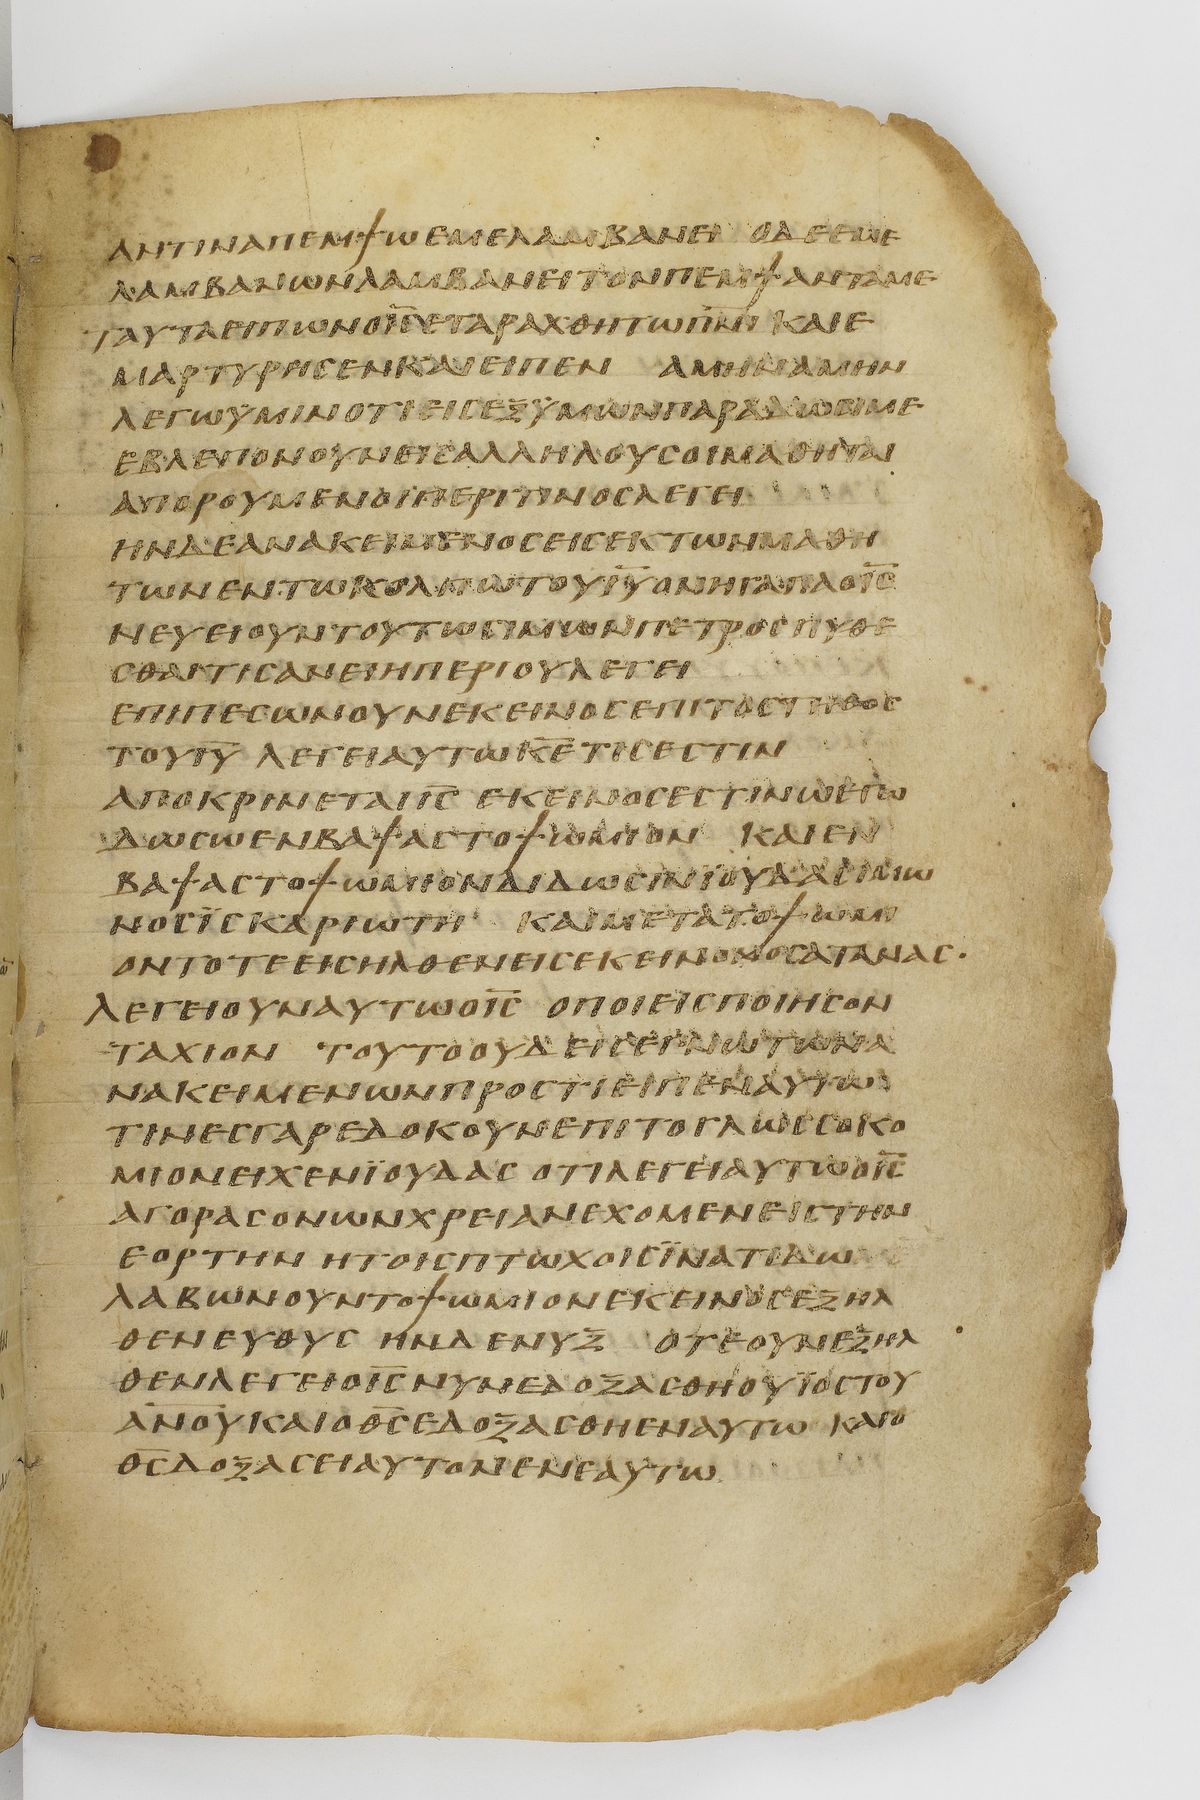 ΑΝΤΙΝΑΠΕΜΨΩΕΜΕΛΑΜΒΑΝΕΙ ΟΔΕΕΜΕ
ΛΑΜΒΑΝΩΝΛΑΜΒΑΝΕΙΤΟΝΠΕΜΨΑΝΤΑΜΕ
ΤΑΥΤΑΕΙΠΩΝΟΙ̅Σ̅ΕΤΑΡΑΧΘΗΤΩΠ̅Ν̅Ι̅ ΚΑΙΕ
ΜΑΡΤΥΡΗΣΕΝΚΑΙΕΙΠΕΝ ΑΜΗΝΑΜΗΝ
ΛΕΓΩΫΜΙΝΟΤΙΕΙΣΕΞΫΜΩΝΠΑΡΑΔΩΣΙΜΕ
ΕΒΛΕΠΟΝΟΥΝΕΙΣΑΛΛΗΛΟΥΣΟΙΜΑΘΗΤΑΙ
ΑΠΟΡΟΥΜΕΝΟΙΠΕΡΙΤΙΝΟΣΛΕΓΕΙ
ΗΝΔΕΑΝΑΚΕΙΜΕΝΟΣΕΙΣΕΚΤΩΝΜΑΘΗ
ΤΩΝΕΝΤΩΚΟΛΠΩΤΟΥΙ̅Υ̅ΟΝΗΓΑΠΑΟΙ̅Σ̅
ΝΕΥΕΙΟΥΝΤΟΥΤΩΣΙΜΩΝΠΕΤΡΟΣΠΥΘΕ
ΣΘΑΙΤΙΣΑΝΕΙΗΠΕΡΙΟΥΛΕΓΕΙ
ΕΠΙΠΕΣΩΝΟΥΝΕΚΕΙΝΟΣΕΠΙΤΟΣΤΗΘΟΣ
ΤΟΥΙ̅Υ̅ ΛΕΓΕΙΑΥΤΩΚ̅Ε̅ΤΙΣΕΣΤΙΝ
ΑΠΟΚΡΙΝΕΤΑΙΙ̅Σ̅ ΕΚΕΙΝΟΣΕΣΤΙΝΩΕΓΩ
ΔΩΣΩΕΝΒΑΨΑΣΤΟΨΩΜΙΟΝ ΚΑΙΕΝ
ΒΑΨΑΣΤΟΨΩΜΙΟΝΔΙΔΩΣΙΝΪΟΥΔΑΣΙΜΩ
ΝΟΣΪΣΚΑΡΙΩΤΗ ΚΑΙΜΕΤΑΤΟΨΩΜΙ
ΟΝΤΟΤΕΕΙΣΗΛΘΕΝΕΙΣΕΚΕΙΝΟΝΟΣΑΤΑΝΑΣ·
ΛΕΓΕΙΟΥΝΑΥΤΩΟΙ̅Σ̅ ΟΠΟΙΕΙΣΠΟΙΗΣΟΝ
ΤΑΧΙΟΝ ΤΟΥΤΟΟΥΔΕΙΣΕΓΝΩΤΩΝΑ
ΝΑΚΕΙΜΕΝΩΝΠΡΟΣΤΙΕΙΠΕΝΑΥΤΩ
ΤΙΝΕΣΓΑΡΕΔΟΚΟΥΝΕΠΙΤΟΓΛΩΣΣΟΚΟ
ΜΙΟΝΕΙΧΕΝΪΟΥΔΑΣ ΟΤΙΛΕΓΕΙΑΥΤΩΟΙ̅Σ̅
ΑΓΟΡΑΣΟΝΩΝΧΡΕΙΑΝΕΧΟΜΕΝΕΙΣΤΗΝ
ΕΟΡΤΗΝ ΗΤΟΙΣΠΤΩΧΟΙΣΪΝΑΤΙΔΩ
ΛΑΒΩΝΟΥΝΤΟΨΩΜΙΟΝΕΚΕΙΝΟΣΕΞΗΛ
ΘΕΝΕΥΘΥΣ ΗΝΔΕΝΥΞ ΟΤΕΟΥΝΕΞΗΛ
ΘΕΝΛΕΓΕΙΟΙ̅Σ̅ΝΥΝΕΔΟΞΑΣΘΗΟΥΪΟΣΤΟΥ
ΑΝΟΥΚΑΙΟΘ̅Σ̅ΕΔΟΞΑΣΘΗΕΝΑΥΤΩ ΚΑΙΟ
Θ̅Σ̅ΔΟΞΑΣΕΙΑΥΤΟΝΕΝΕΑΥΤΩ